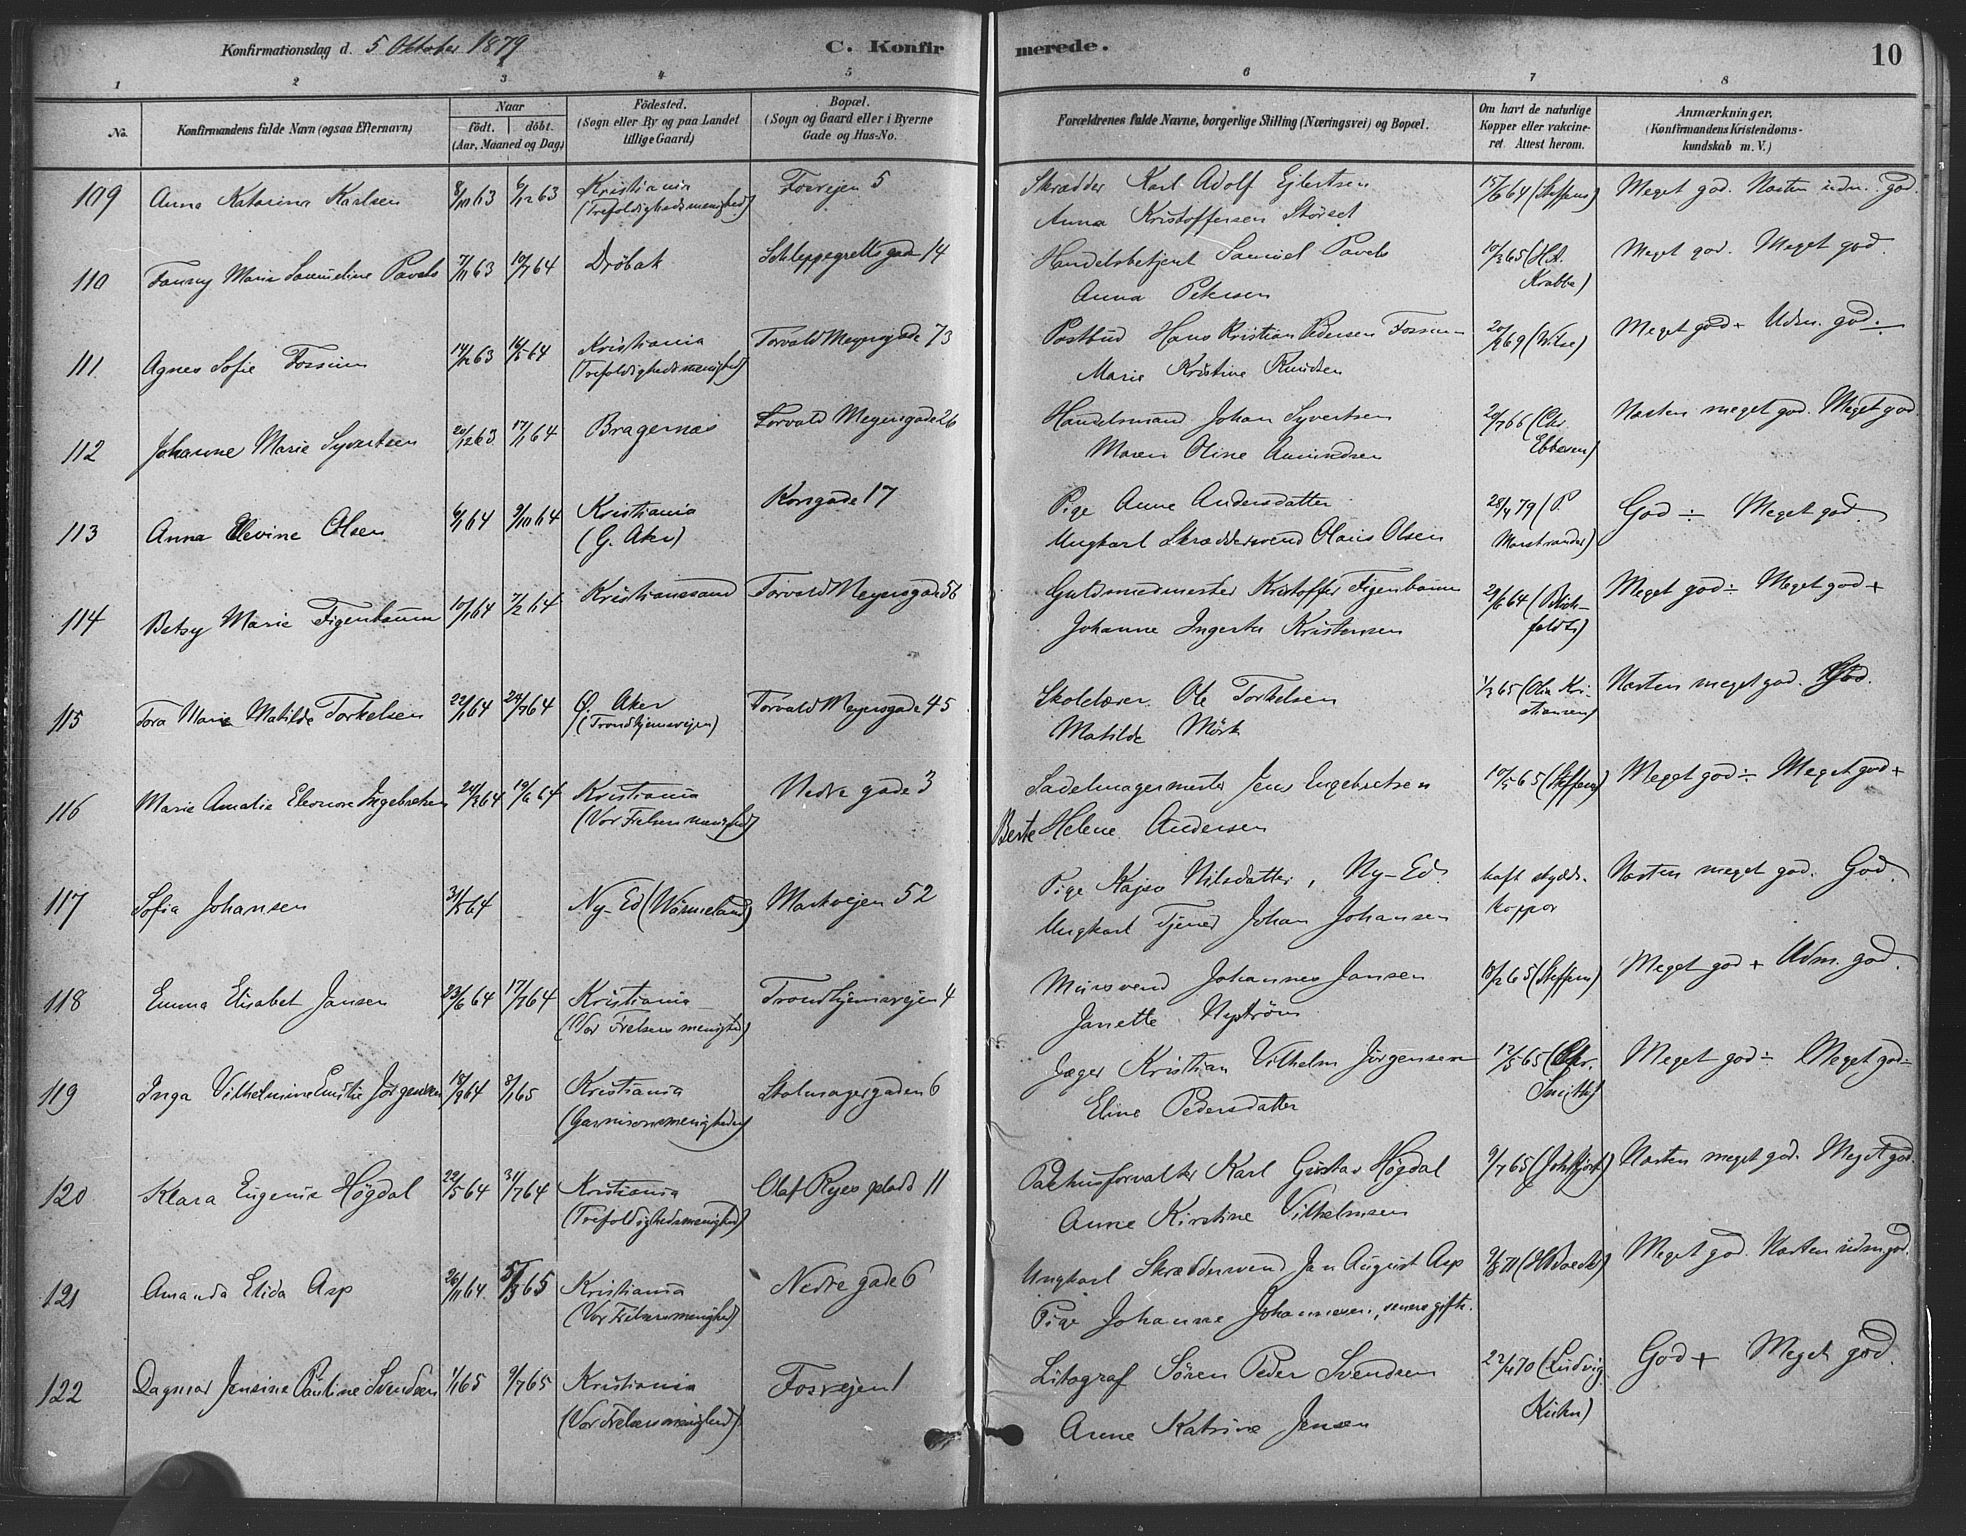 Konfirmationsdag d. 5 Oktober 1879 C. Konfirmerede. 10
1 2 3 4 5 6 7 8
No. Konfirmandens fulde Navn (ogsaa Efternavn) Naar födt. döbt. (Aar, Maaned og Dag) Födested. (Sogn eller By og paa Landet tillige Gaard) Bopæl. (Sogn og Gaard eller i Byerne Gade og Hus-No. Forældrenes fulde Navne, borgerlige Stilling (Næringsvei) og Bopæl. Om havt de naturlige Kopper eller vakcineret Attest herom. Anmærkninger. (Konfirmandens Kristendomskundskab m. V.)
109 Anna Katarina Karlsen 8/10 63 6/12 63 Kristiania Fosvejen 5 Skrædder Karl Adolf Ejlertsen 15/6 64 (Steffens) Meget god. Næsten udm. god.
(Trefoldighedsmenighed) Anna Kristoffersen Störset
110 Fanny Marie Samueline Pavels 7/11 63 10/7 64 Dröbak Schleppegrellsgade 14 Handelsbetjent Samuel Pavels 10/3 65 (H.A. Meget god. Meget god.
Anna Petersen Krabbe)
111. Agnes Sofie Fossum 14/12 63 16/5 64 Kristiania Torvald Meyersgade 73 Postbud Hans Kristian Pedersen Fossum 69 (Wilse) Meget god + Udm. god ÷
(Trefoldighedsmenighed) Marie Kristine Knudsen
112 Johanne Marie Syvertsen 20/12 63 17/1 64 Bragernæs Torvald Meyersgade 26 Handelsmand Johan Syvertsen 20/7 66 (Chr. Næsten meget god. Meget god.
Maren Oline Amundsen Ebbesen)
113 Anna Elevine Olsen 6/1 64 9/10 64 Kristiania Korsgade 17 Pige Anne Andersdatter 28/4 79 (P. God ÷ Meget god.
(G. Aker) Ungkarl Skræddersvend Olaus Olsen Marstrander)
114 Betsy Marie Figenbaum 10/1 64 7/2 64 Kristianssand Torvald Meyersgade 56 Guldsmedmester Kristoffer Figenbaum 29/6 64 (Blich- Meget god ÷ Meget god +
Johanne Ingerta Kristensen feldt)
115 Tora Marie Matilde Torkelsen 22/1 64 24/7 64 Ø. Aker Torvald Meyersgade 45 Skolelærer Ole Torkelsen 1/7 65 (Olia Kri- Næsten meget god. God.
(Trondhjemsvejen) Matilde Mörk stiansen)
116 Marie Amalie Eleonore Ingebretsen 24/3 64 19/6 64 Kristiania Nedre gade 3 Sadelmagermester Jens Engebretsen 10/5 65 (Steffens) Meget god ÷ Meget god +
(Vor Frelsers menighed) Berte Helene Andersen
117 Sofia Johansen 31/5 64 Ny-Ed (Wärmeland) Markvejen 52 Pige Kajsa Nilsdatter, Ny-Ed. haft skydds- Næsten meget god. God.
Ungkarl Tjener Johan Johansen koppor
118 Emma Elisabet Jansen 23/6 64 17/7 64 Kristiania Trondhjemsvejen 4 Mursvend Johannes Jansen 18/2 65 (Steffens) Meget god + Udm. god.
(Vor Frelsers menighed) Janette Nyström
119 Inga Vilhelmine Emilie Jörgensen 18/9 64 8/1 65 Kristiania Stolmagergaden 6 Jæger Kristian Vilhelm Jörgensen 12/5 65 (Chr. Meget god ÷ Meget god ÷
(Garnisonsmenigheden) Eline Pedersdatter Smith)
120 Klara Eugenie Högdal 22/5 64 31/7 64 Kristiania Olaf Ryes plads 11 Pakhusforvalter Karl Gustav Högdal 9/7 65 Næsten meget god. Meget god.
(Trefoldighedsmenighed) Anne Kirstine Vilhelmsen
121 Amanda Elida Asp 26/11 64 5/3 65 Kristiania Nedre gade 6 Ungkarl Skræddersvend Jan August Asp 9/8 71 Meget god. Næsten udm god.
(Vor Frelsers menighed) Pige Johanne Johannesen, senere gift.
122 Dagmar Jensine Pauline Svendsen 1/1 65 9/7 65 Kristiania Fosvejen 1 Litograf Sören Peder Svendsen 22/4 70 (Ludvig God + Meget god.
(Vor Frelsers menighed) Anne Katrine Jensen Kühn)